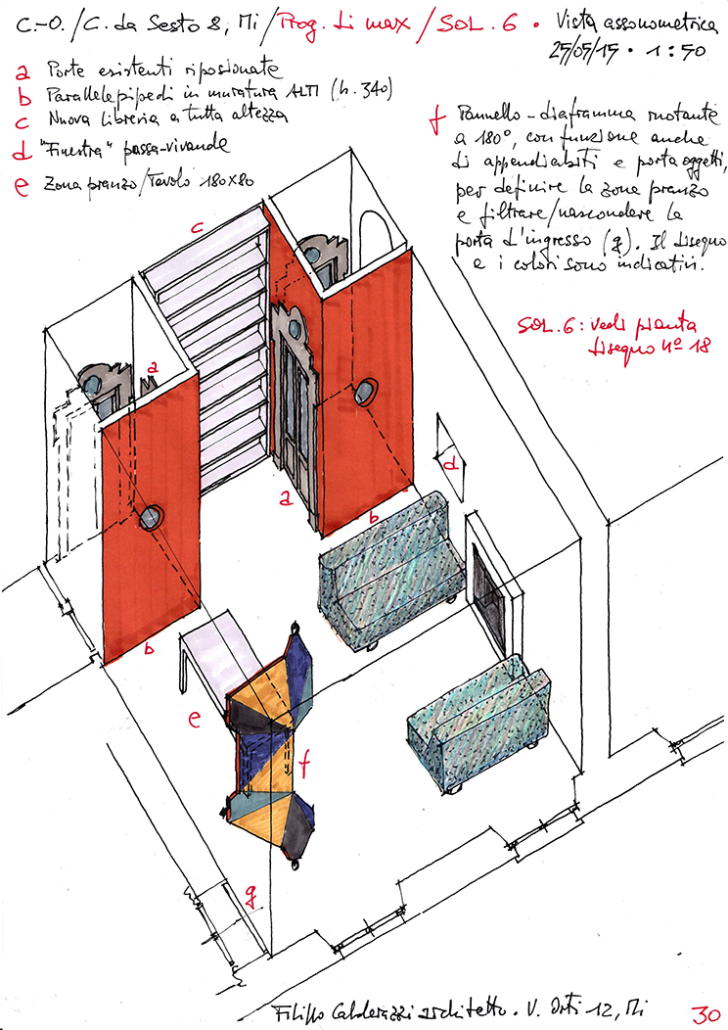 C.-O. / C. da Sesto 8, Mi / Prog. di max / SOL. 6 • Vista assonometrica
25/05/15 • 1:50
a Porte esistenti riposionate
b Parallelepipedi in muratura ALTI (h. 340)
c Nuova libreria a tutta altezza
d "Finestra" passa-vivande
e Zona pranzo/Tavolo 180x80
f Pannello-diaframma ruotante
a 180°, con funzione anche
di appendiabiti e porta oggetti,
per definire la zona pranzo
e filtrare/nascondere la
porta d'ingresso (g). Il disegno
e i colori sono indicativi.
SOL. 6: vedi pianta
disegno nº 18
c
a
d
a
b
b
e
f
g
Filippo Calderazzi architetto. V. Orti 12, Mi
30